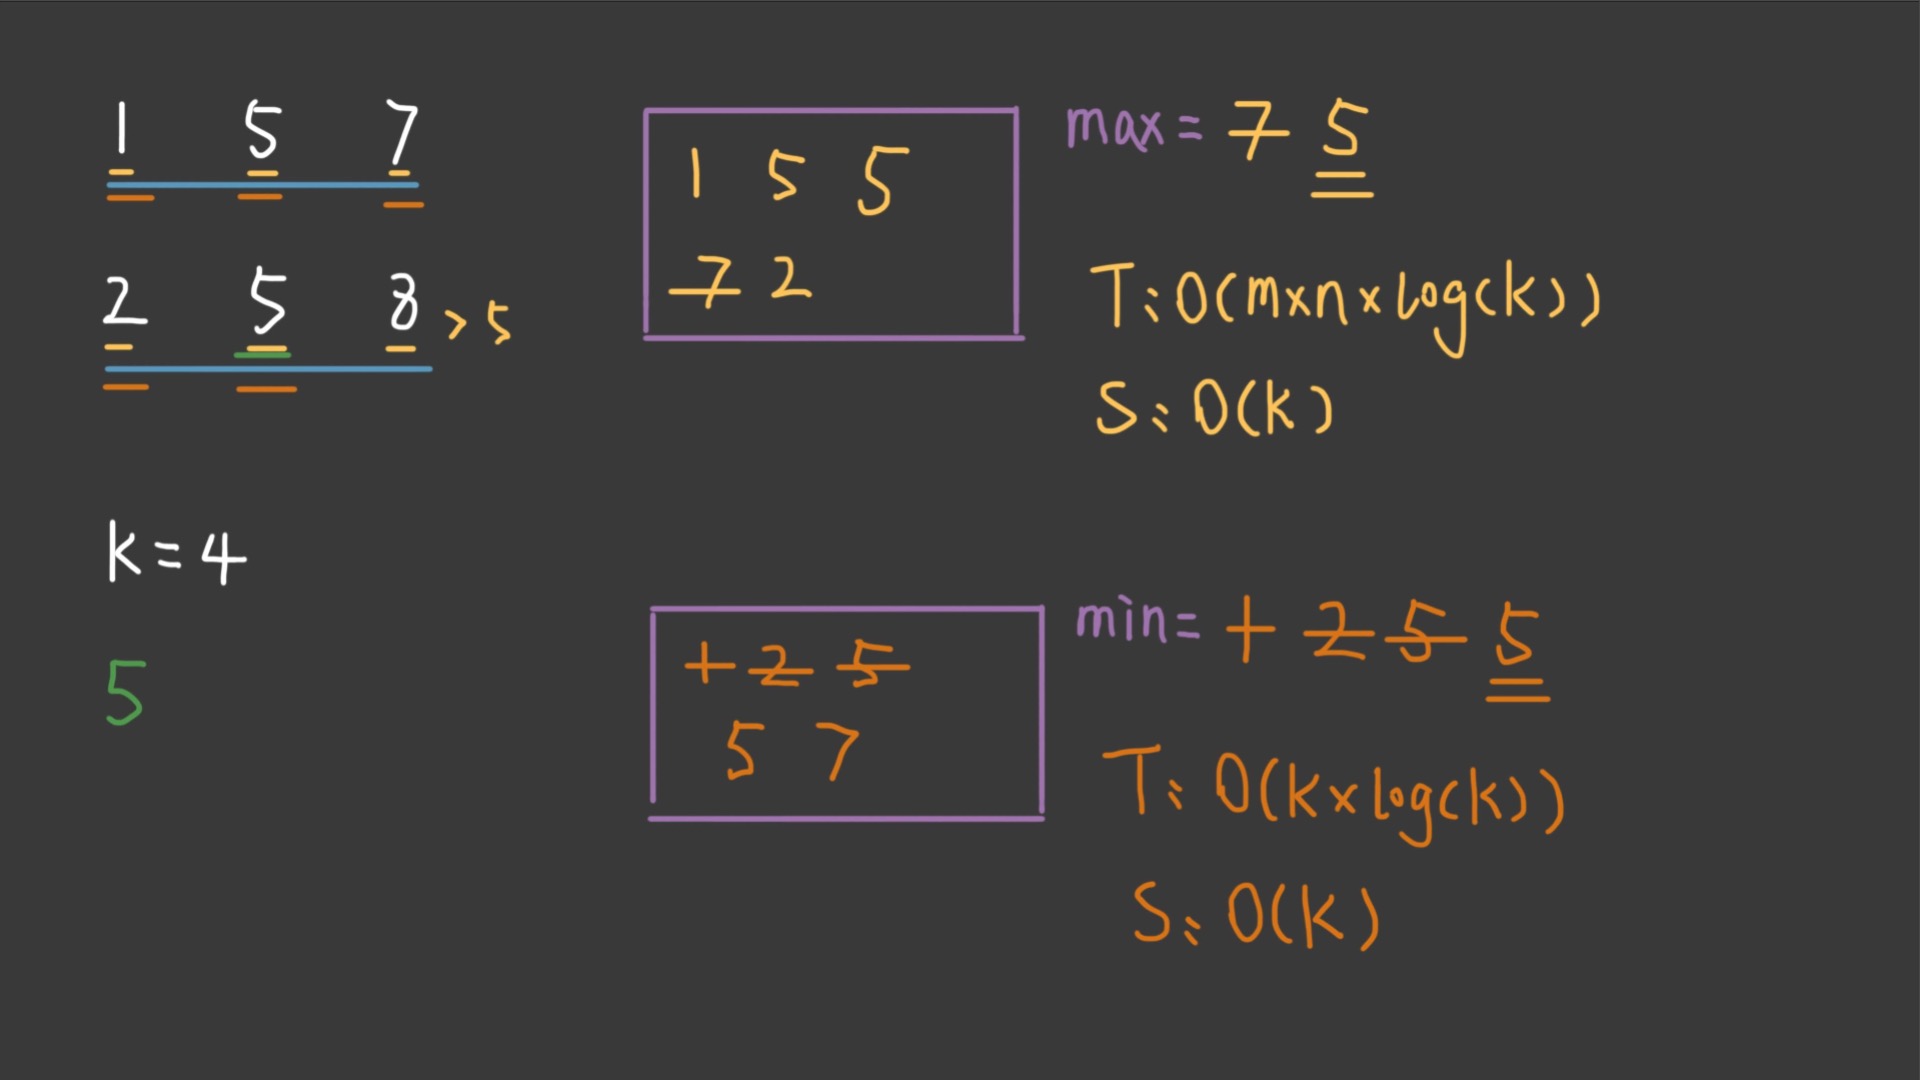 1 5 7
2 5 8 > 5
k = 4
5
1 5 5
7 2
max = 7 5
T: O(m×n×log(k))
S: O(k)
1 2 5
5 7
min = 1 2 5 5
T: O(k×log(k))
S: O(k)